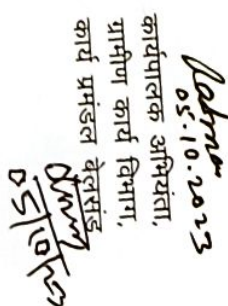 05.10.2023
कार्यपालक अभियंता,
ग्रामीण कार्य विभाग,
कार्य प्रमंडल बेलसंड
05/10/23